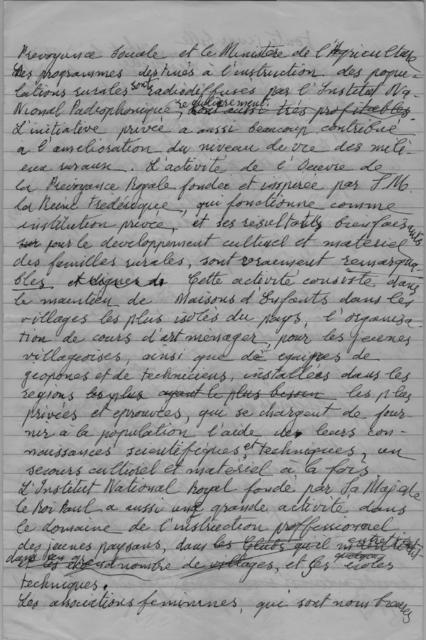 Prevoyance Sociale et le Ministère de l'Agriculture
Des programmes destinés à l'instruction des popu-
lations rurales sont radiodiffusés par l'Institut Na-
tional Radiophonique, regulièrement. sont aussi très profitables.
L'initiative privée a aussi beaucoup contribué
a l'amelioration du niveau de vie des mili-
eux ruraux. L'activité de l'Oeuvre de
la Prevoyance Royale fondée et inspirée par S.M.
la Reine Frederique, qui fonctionne comme
institution privée, et ses resultats bienfaisants
sur pour le developpement culturel et materiel
des familles rurales, sont vraiment remarqua-
bles et dignes de Cette activité consiste dans
le maintien de Maisons d'Enfants dans les
villages les plus isolés du pays, l'organisa-
tion de cours d'art ménager, pour les jeunes
villageoises, ainsi que de equipes de
geopones et de techniciens, installées dans les
regions les plus ayant le plus besoin les plus
privées et eprouvées, qui se chargent de four-
nir à la population l'aide de leurs con-
naissances scientifiques et techniques, un
secours culturel et matériel à la fois.
L'Institut National Royal fondé par Sa Majesté
le Roi Paul a aussi une grande activité dans
le domaine de l'instruction proffessionnel
des jeunes paysans, dans les Clubs qu'il entretient
dans nombre de villages, et ses écoles
techniques.
Les associations feminines, qui sont nombreuses